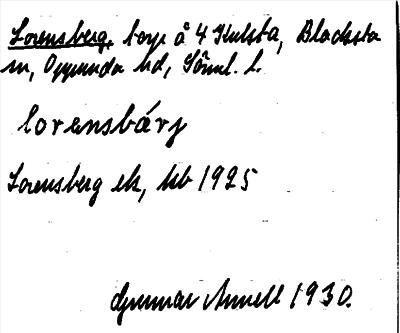 Lorensberg, torp å 4 Hulsta, Blacksta
sn, Oppunda hd, Söml. l.
lorensbárj
Lorensberg ek, kb 1925
Gunnar Annell 1930.